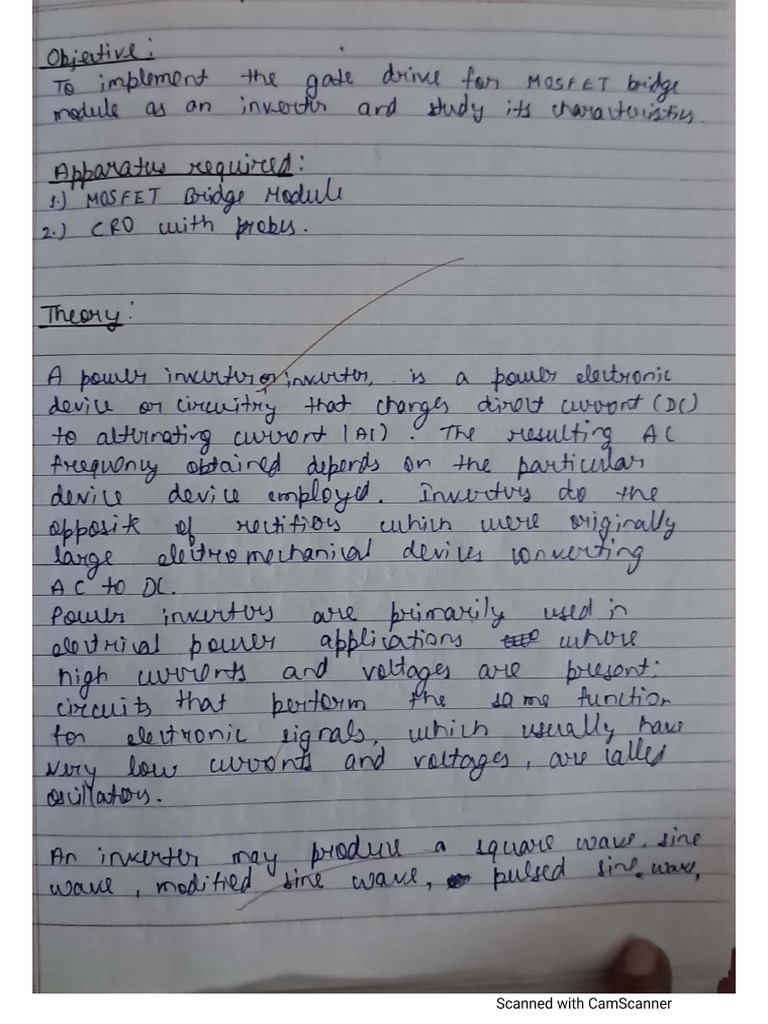 Objective:
To implement the gate drive for MOSFET bridge
module as an inverter and study its characteristics.
Apparatus required:
1.) MOSFET Bridge Module
2.) CRO with probes.
Theory:
A power inverter or inverter, is a power electronic
device or circuitry that changes direct current (DC)
to alternating current (AC). The resulting AC
frequency obtained depends on the particular
device device employed. Inverters do the
opposite of rectifiers which were originally
large electromechanical devices converting
AC to DC.
Power inverters are primarily used in
electrical power applications where
high currents and voltages are present;
circuits that perform the same function
for electronic signals, which usually have
very low currents and voltages, are called
oscillators.
An inverter may produce a square wave, sine
wave, modified sine wave, pulsed sine wave,
Scanned with CamScanner